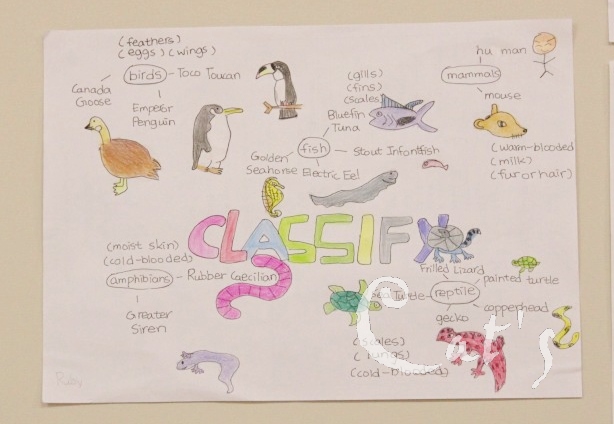 (feathers)
(eggs) (wings)
birds
Toco Toucan
Canada
Goose
Emperor
Penguin
(gills)
(fins)
(scales)
Bluefin
Tuna
fish
Stout Infantfish
Golden
Seahorse
Electric Eel
human
mammals
mouse
(warm-blooded)
(milk)
(fur or hair)
CLASSIFY
(moist skin)
(cold-blooded)
amphibians
Rubber Caecilian
Greater
Siren
Frilled Lizard
painted turtle
Sea Turtle
reptile
copperhead
gecko
(scales)
(lungs)
(cold-blooded)
Ruby
Cat's